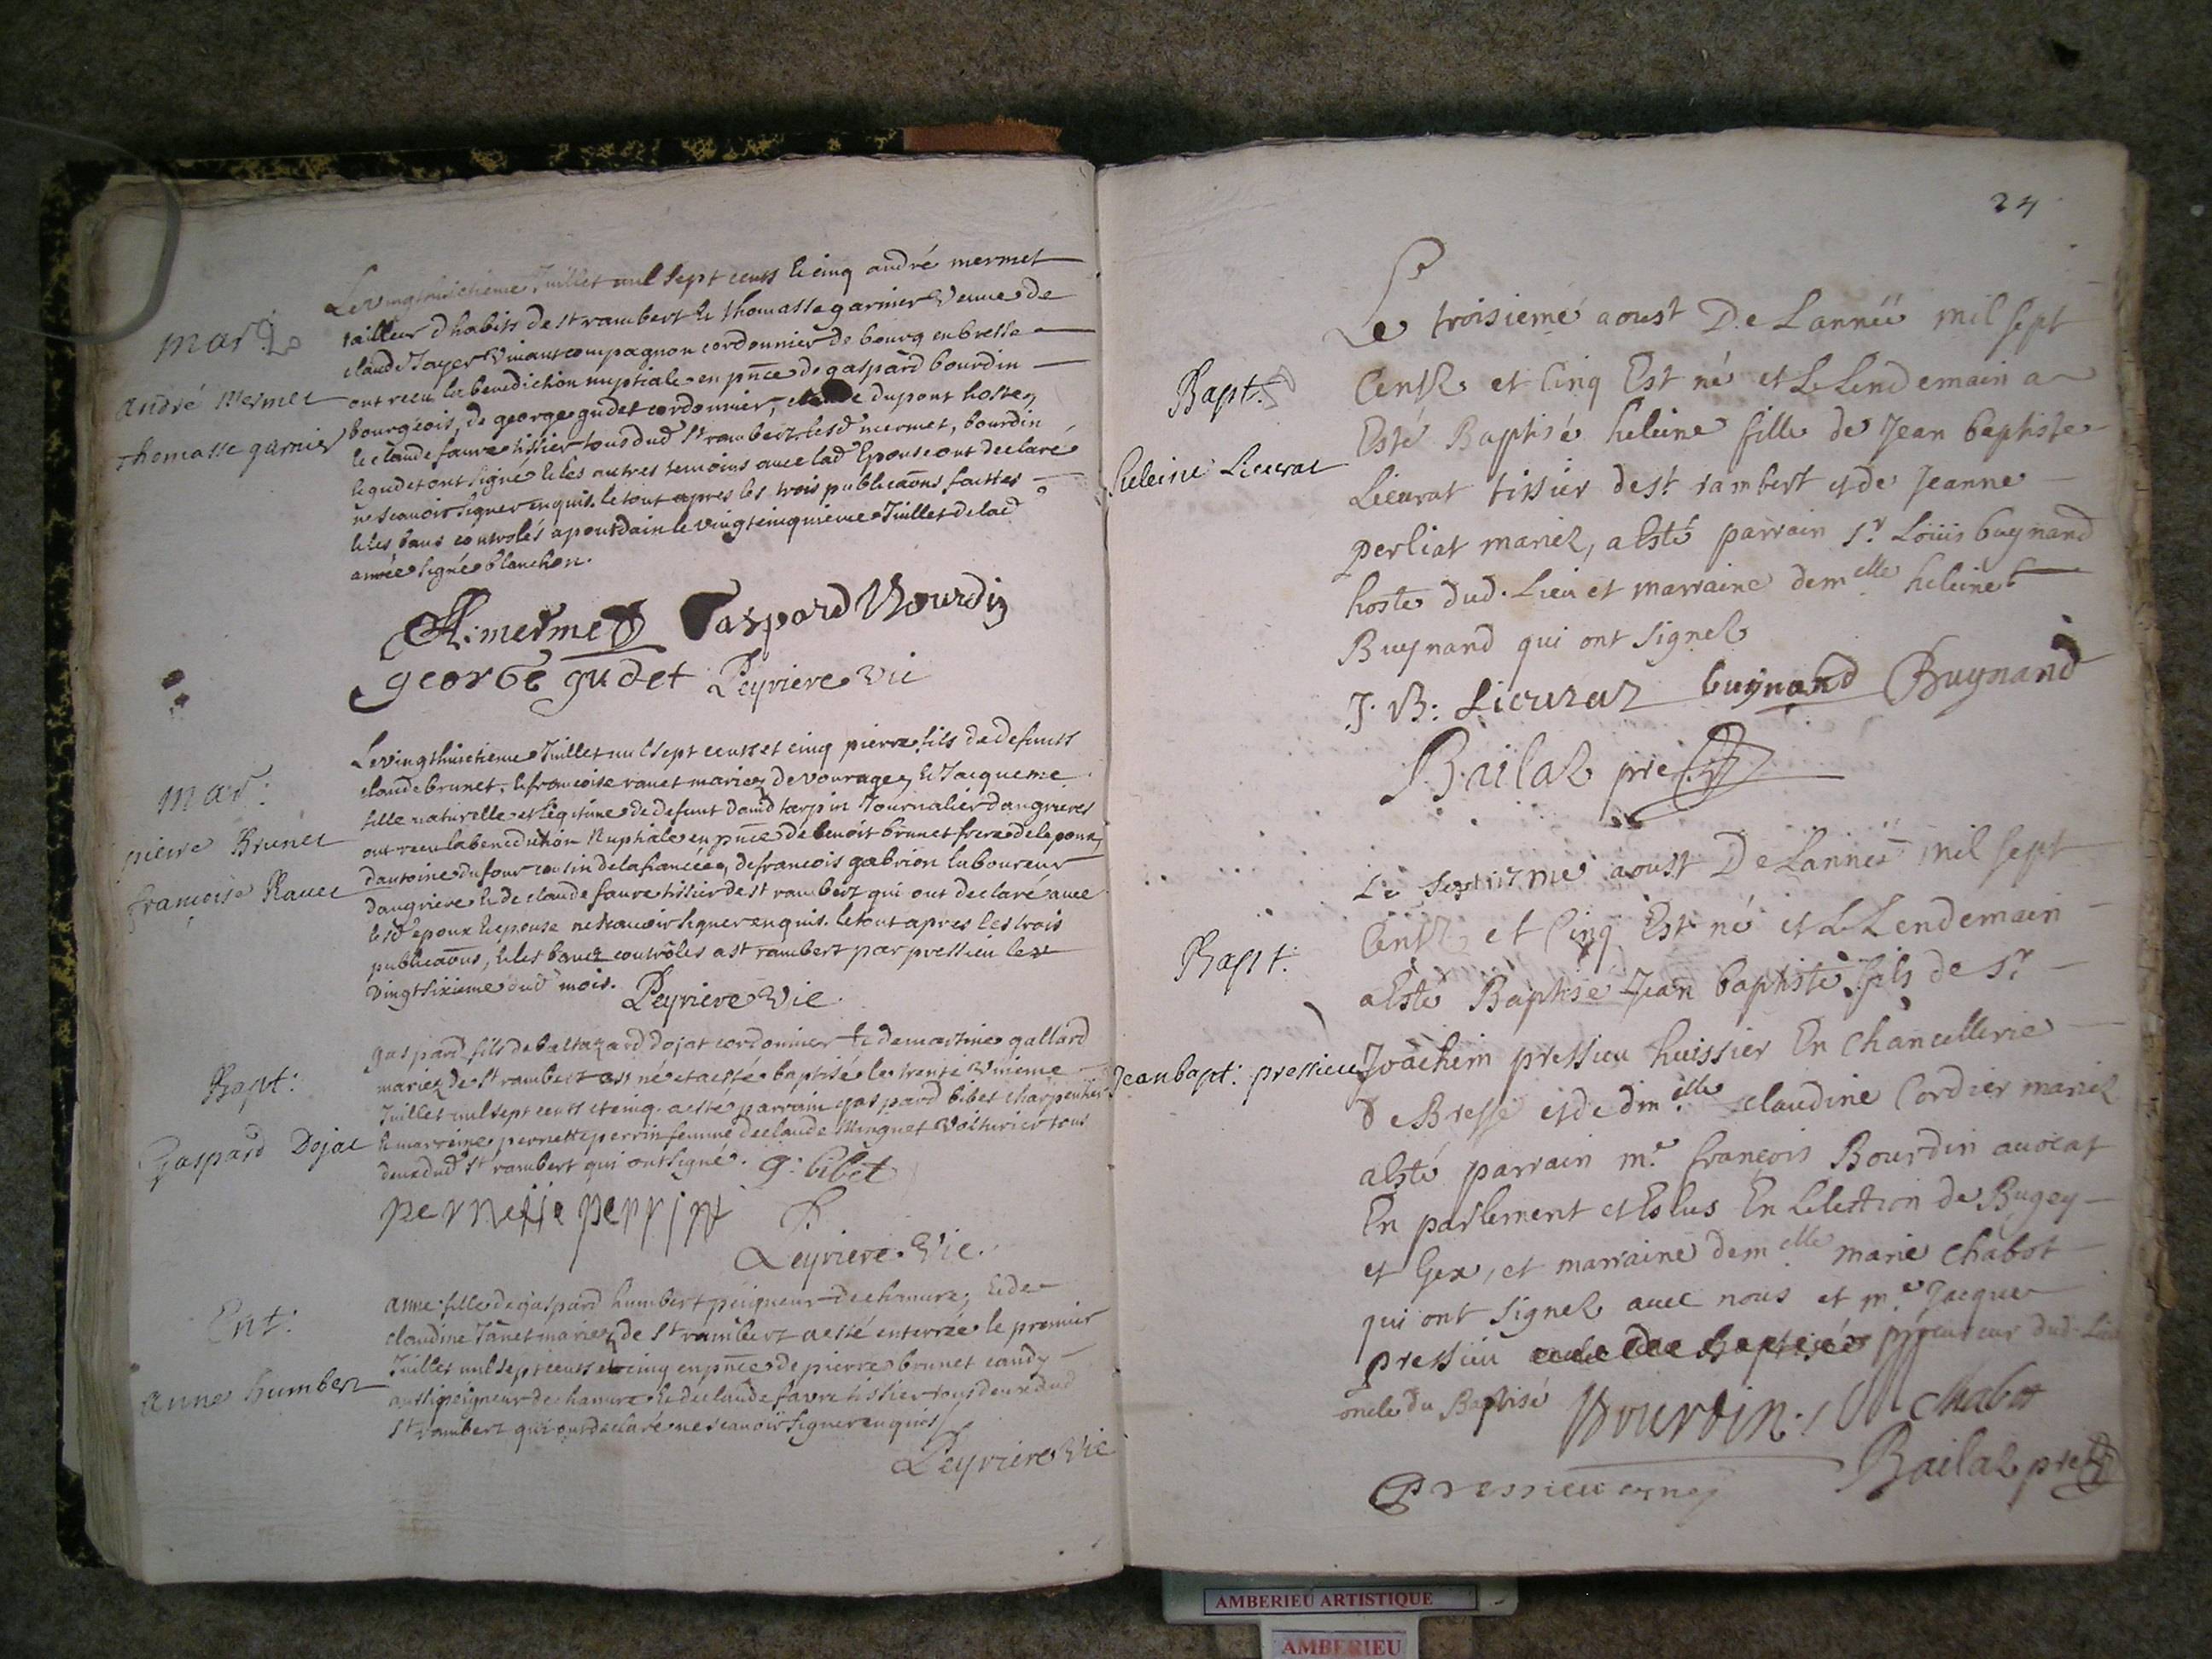 Le vingthuictieme Juillet mil sept cents & cinq andré mermet
mar:
tailleur d'habits de st rambert & thomasse garnier veuve de
claude Jayer vivant compagnon cordonnier de bourg en bresse
andré Mermet
ont receu la benediction nuptiale en pñce de gaspard bourdin
thomasse garnier
bourgeois, de george gudet cordonnier, claude dupont hoste,
& claude faure tissier tous dud st rambert lesd mermet, bourdin
& gudet ont signé & les autres temoins avec lad Epouse ont declaré
ne scavoir signer enquis. le tout apres les trois publicaõns faittes
& les bans controlés a poncdain le vingtcinquieme Juillet de lad
année signé blanchon.
A: mermet Gaspard Bourdin
george gudet Peyriere vic
Le vingthuictieme Juillet mil sept cents et cinq pierre fils de defunts
mar:
claude brunet, & francoise ravet mariez de vourages, & Jacqueme
pierre Brunet
fille naturelle et legitime de defunt david tarpin Journalier dangrieres
francoise Ravet
ont receu la benediction Nuptiale en pñce de benoit brunet frere de lepoux,
dantoine dufour cousin de la fiancée, de francois gabrion laboureur
dangriere & de claude faure tissier de st rambert qui ont declaré avec
lesd epoux & epouse ne scavoir signer enquis. le tout apres les trois
publicaõns, & les bans controlés a st rambert par pressieu le
vingtsixieme dud mois. Peyriere vic
Bapt:
gaspard fils de baltazard dojat cordonnier & de martine gallard
mariez de st rambert est né et a esté baptisé le trente unieme
Juillet mil sept cents et cinq. a esté parrain gaspard bibet charpentier
Gaspard Dojat
& marreine pernette perrin femme de claude Minguet voiturier tous
deux dud st rambert qui ont signé. g: bibet
perneție perrin
Peyriere Vic.
Ent:
anne fille de gaspard humbert peigneur de chanvre, & de
claudine Janet mariez de st rambert a esté enterrée le premier
Juillet mil sept cents et cinq en pñce de pierre brunet candy
anne humbert
aussi peigneur de chanvre & de claude favre tissier tous deux dud
st rambert qui ont declaré ne scavoir signer enquis
Peyriere Vic
24
Le troisieme aoust De Lannée mil sept
Bapt:
Centz et Cinq Est né et Le Lendemain a
Esté Baptisé heleine fille de Jean baptiste
heleine Lieurat
Lieurat tissier de st rambert et de Jeanne
perliat mariez, a Esté parrain sr Louis buynand
hoste dud. Lieu et marraine demelle heleine
Buynand qui ont signez
J. B: Lieuraz buynand Buynand
Bailaz pre
Le septieme aoust De Lannée mil sept
Bapt:
Centz et Cinq Est né et Le Lendemain
a Esté Baptisé Jean baptiste fils de sr
Jean bapt: pressieu
Joachim pressieu huissier En Chancellerie
de Bresse et de dmelle claudine Cordier mariez
a Esté parrain me francois Bourdin avocat
En parlement et Eslus En Lelection de Bugey
et Gex, et marraine demelle marie Chabot
qui ont signez avec nous et me Jacque
pressieu procureur dud. Lieu
oncle du Baptisé Bourdin. M chabot
Pressieu Bailaz pre
AMBERIEU ARTISTIQUE
AMBERIEU